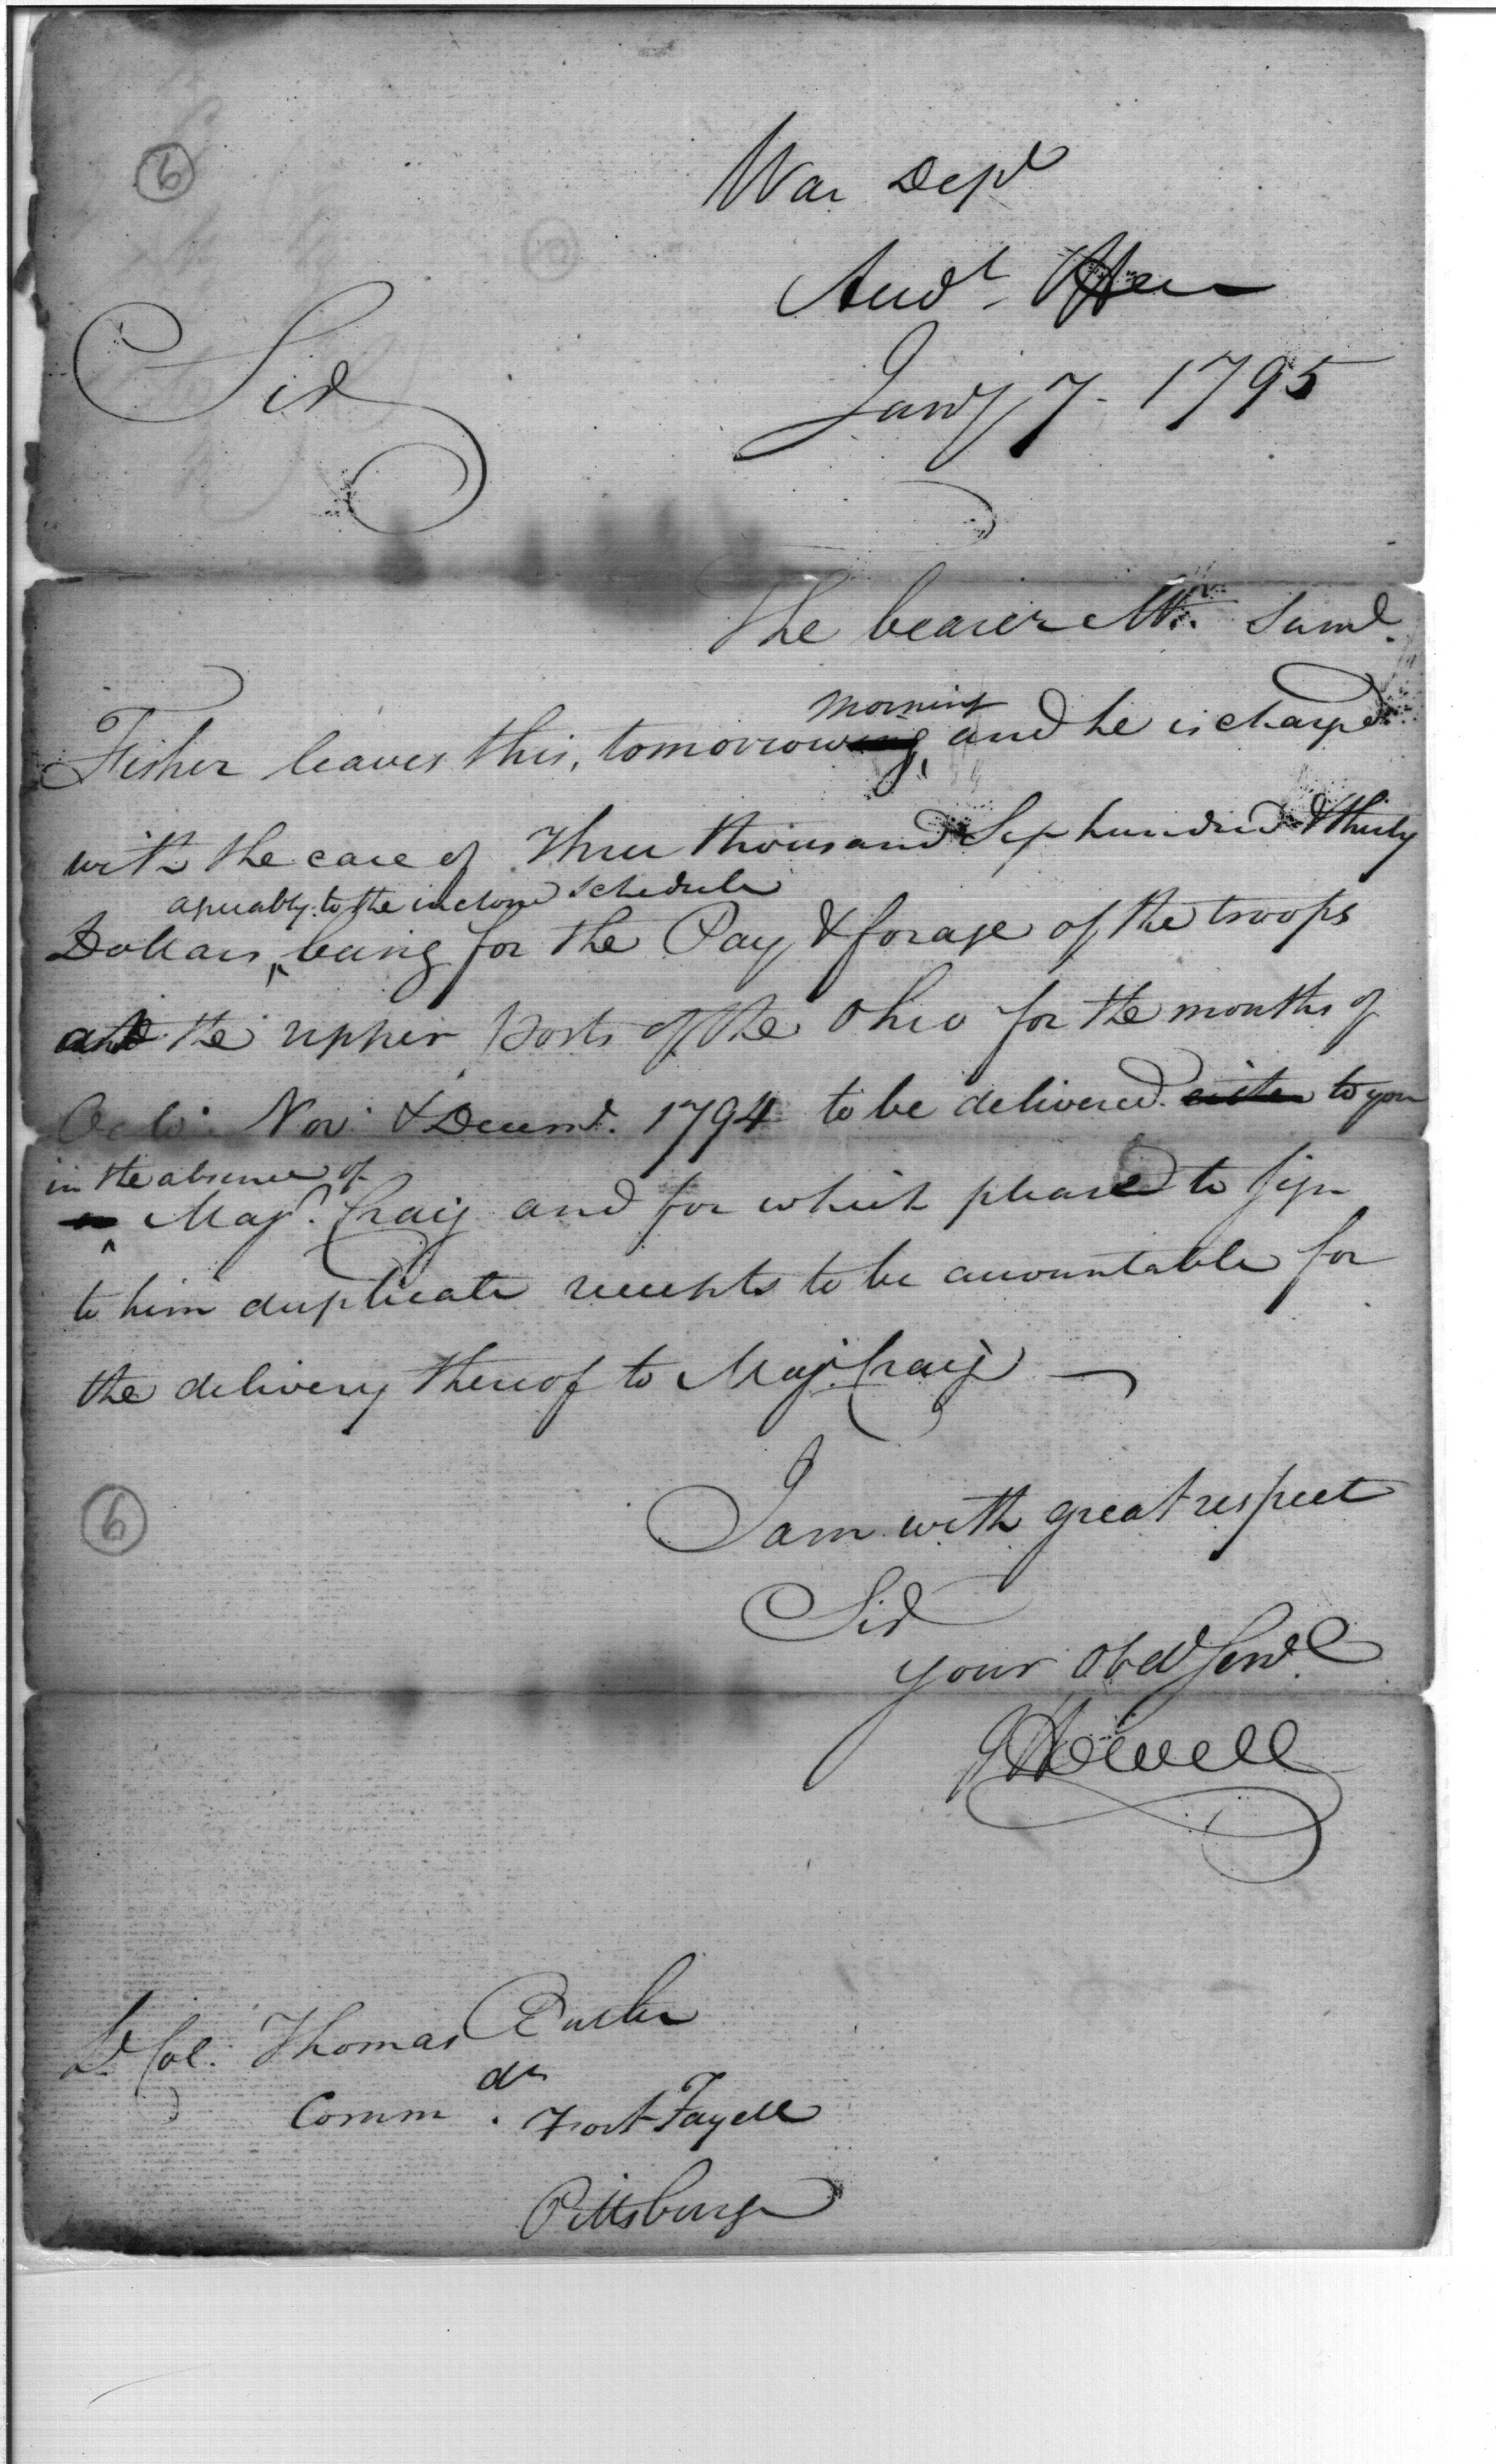 6
War Dept
Audt. Office
Sir
Jany 7. 1795
The bearer Mr. Saml.
morning
Fisher leaves this, tomorrow and he is charged
with the care of Three thousand Six hundred & thirty
agreeably to the inclosed schedule
Dollars, being for the Pay & forage of the troops
at the upper posts of the Ohio for the months of
Octo. Nov. & Decemr. 1794 to be delivered either to you
in the absence of
or Majr. Craig and for which please to sign
to him duplicate receipts to be accountable for
the delivery thereof to Majr. Craig
6
I am with great respect
Sir
your Obd Servt.
J Howell
Lt Col. Thomas Butler
Commdt. Fort Fayette
Pittsburg